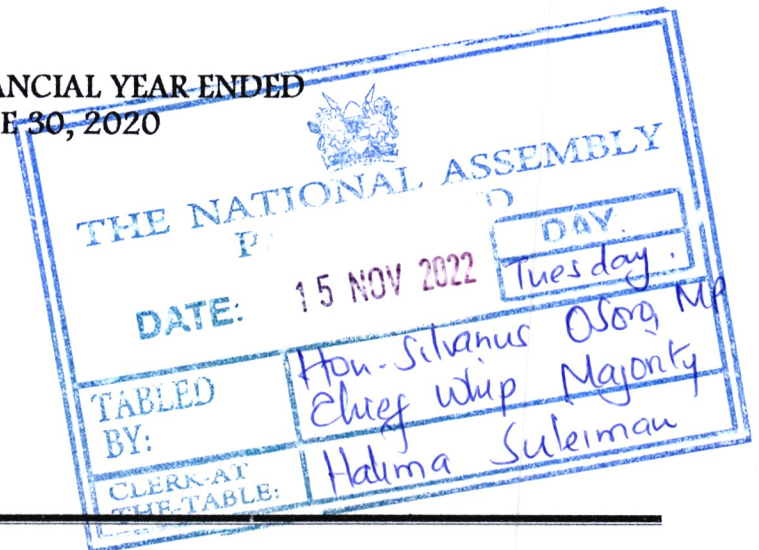 ANCIAL YEAR ENDED
E 30, 2020
THE NATIONAL ASSEMBLY
DATE: 15 NOV 2022
DAY.
Tuesday.
TABLED BY:
Hon. Silvanus Osoro, MP
Chief Whip Majority
CLERK-AT THE-TABLE:
Halima Suleiman